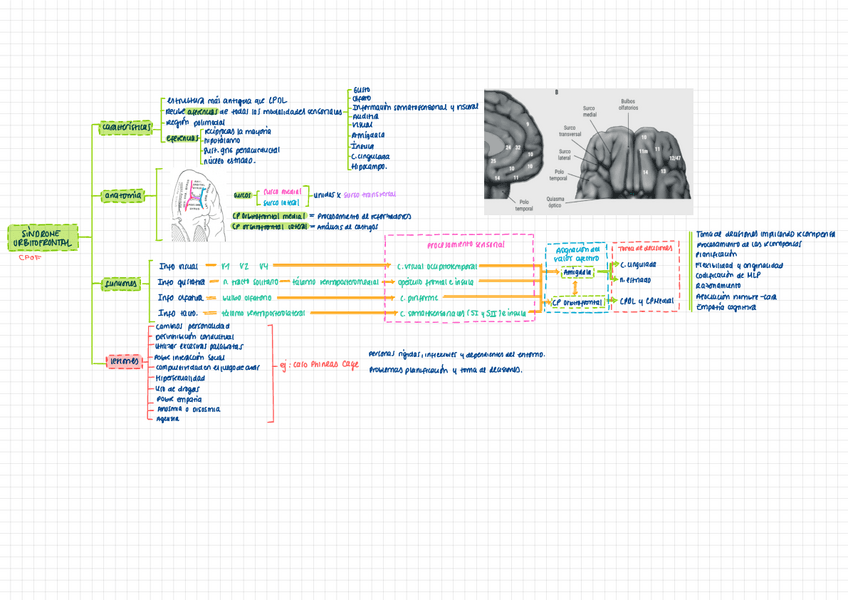 SÍNDROME
ORBITOFRONTAL
CPOF
características
estructura más antigua que CPDL
Recibe aferencias de todas las modalidades sensoriales
Gusto
Olfato
Información somatosensorial y visceral
Auditiva
Visual
Amígdala
Ínsula
C. cingulada
Hipocampo.
Región
eferencias
Recíprocas la mayoría
hipotálamo
Sust. gris periacueductal
núcleo estriado.
anatomía
surcos
surco medial
surco lateral
unidos x surco transversal
CP orbitofrontal medial = Procesamiento de reforzadores
CP orbitofrontal lateral = Análisis de castigos
B
Bulbos
olfatorios
Surco
medial
Surco
transversal
Surco
lateral
Polo
temporal
Quiasma
óptico
Polo
temporal
9
10
24
32
25
14
11
10
11m
13
14
12/47
funciones
Procesamiento sensorial
Info visual
V1 V2 V4
C. visual occipitotemporal
Info gustativa
n. tracto solitario
tálamo ventroposteromedial
opérculo frontal e ínsula
Info olfativa
bulbo olfatorio
c. piriforme
tálamo ventroposterolateral
c. somatosensorial (SI y SII) e ínsula
Asignación del
valor afectivo
Amígdala
CP orbitofrontal
Toma de decisiones
C. cingulada
n. estriado
CPDL y CPMedial
Toma de decisiones implicando recompensa
Procesamiento de las recompensas
Planificación
Flexibilidad y originalidad
Codificación de MLP
Razonamiento
Asociación nombre-cara
Empatía cognitiva
lesiones
Cambios personalidad
Desinhibición conductual
Utilizar excesivas palabrotas
Pobre interacción social
Compulsividad en el juego de azar
Hipersexualidad
Uso de drogas
Pobre empatía
Anosmia o disosmia
Ageusia
ej: caso Phineas Gage
Personas rígidas, inflexibles y dependientes del entorno.
Problemas planificación y toma de decisiones.